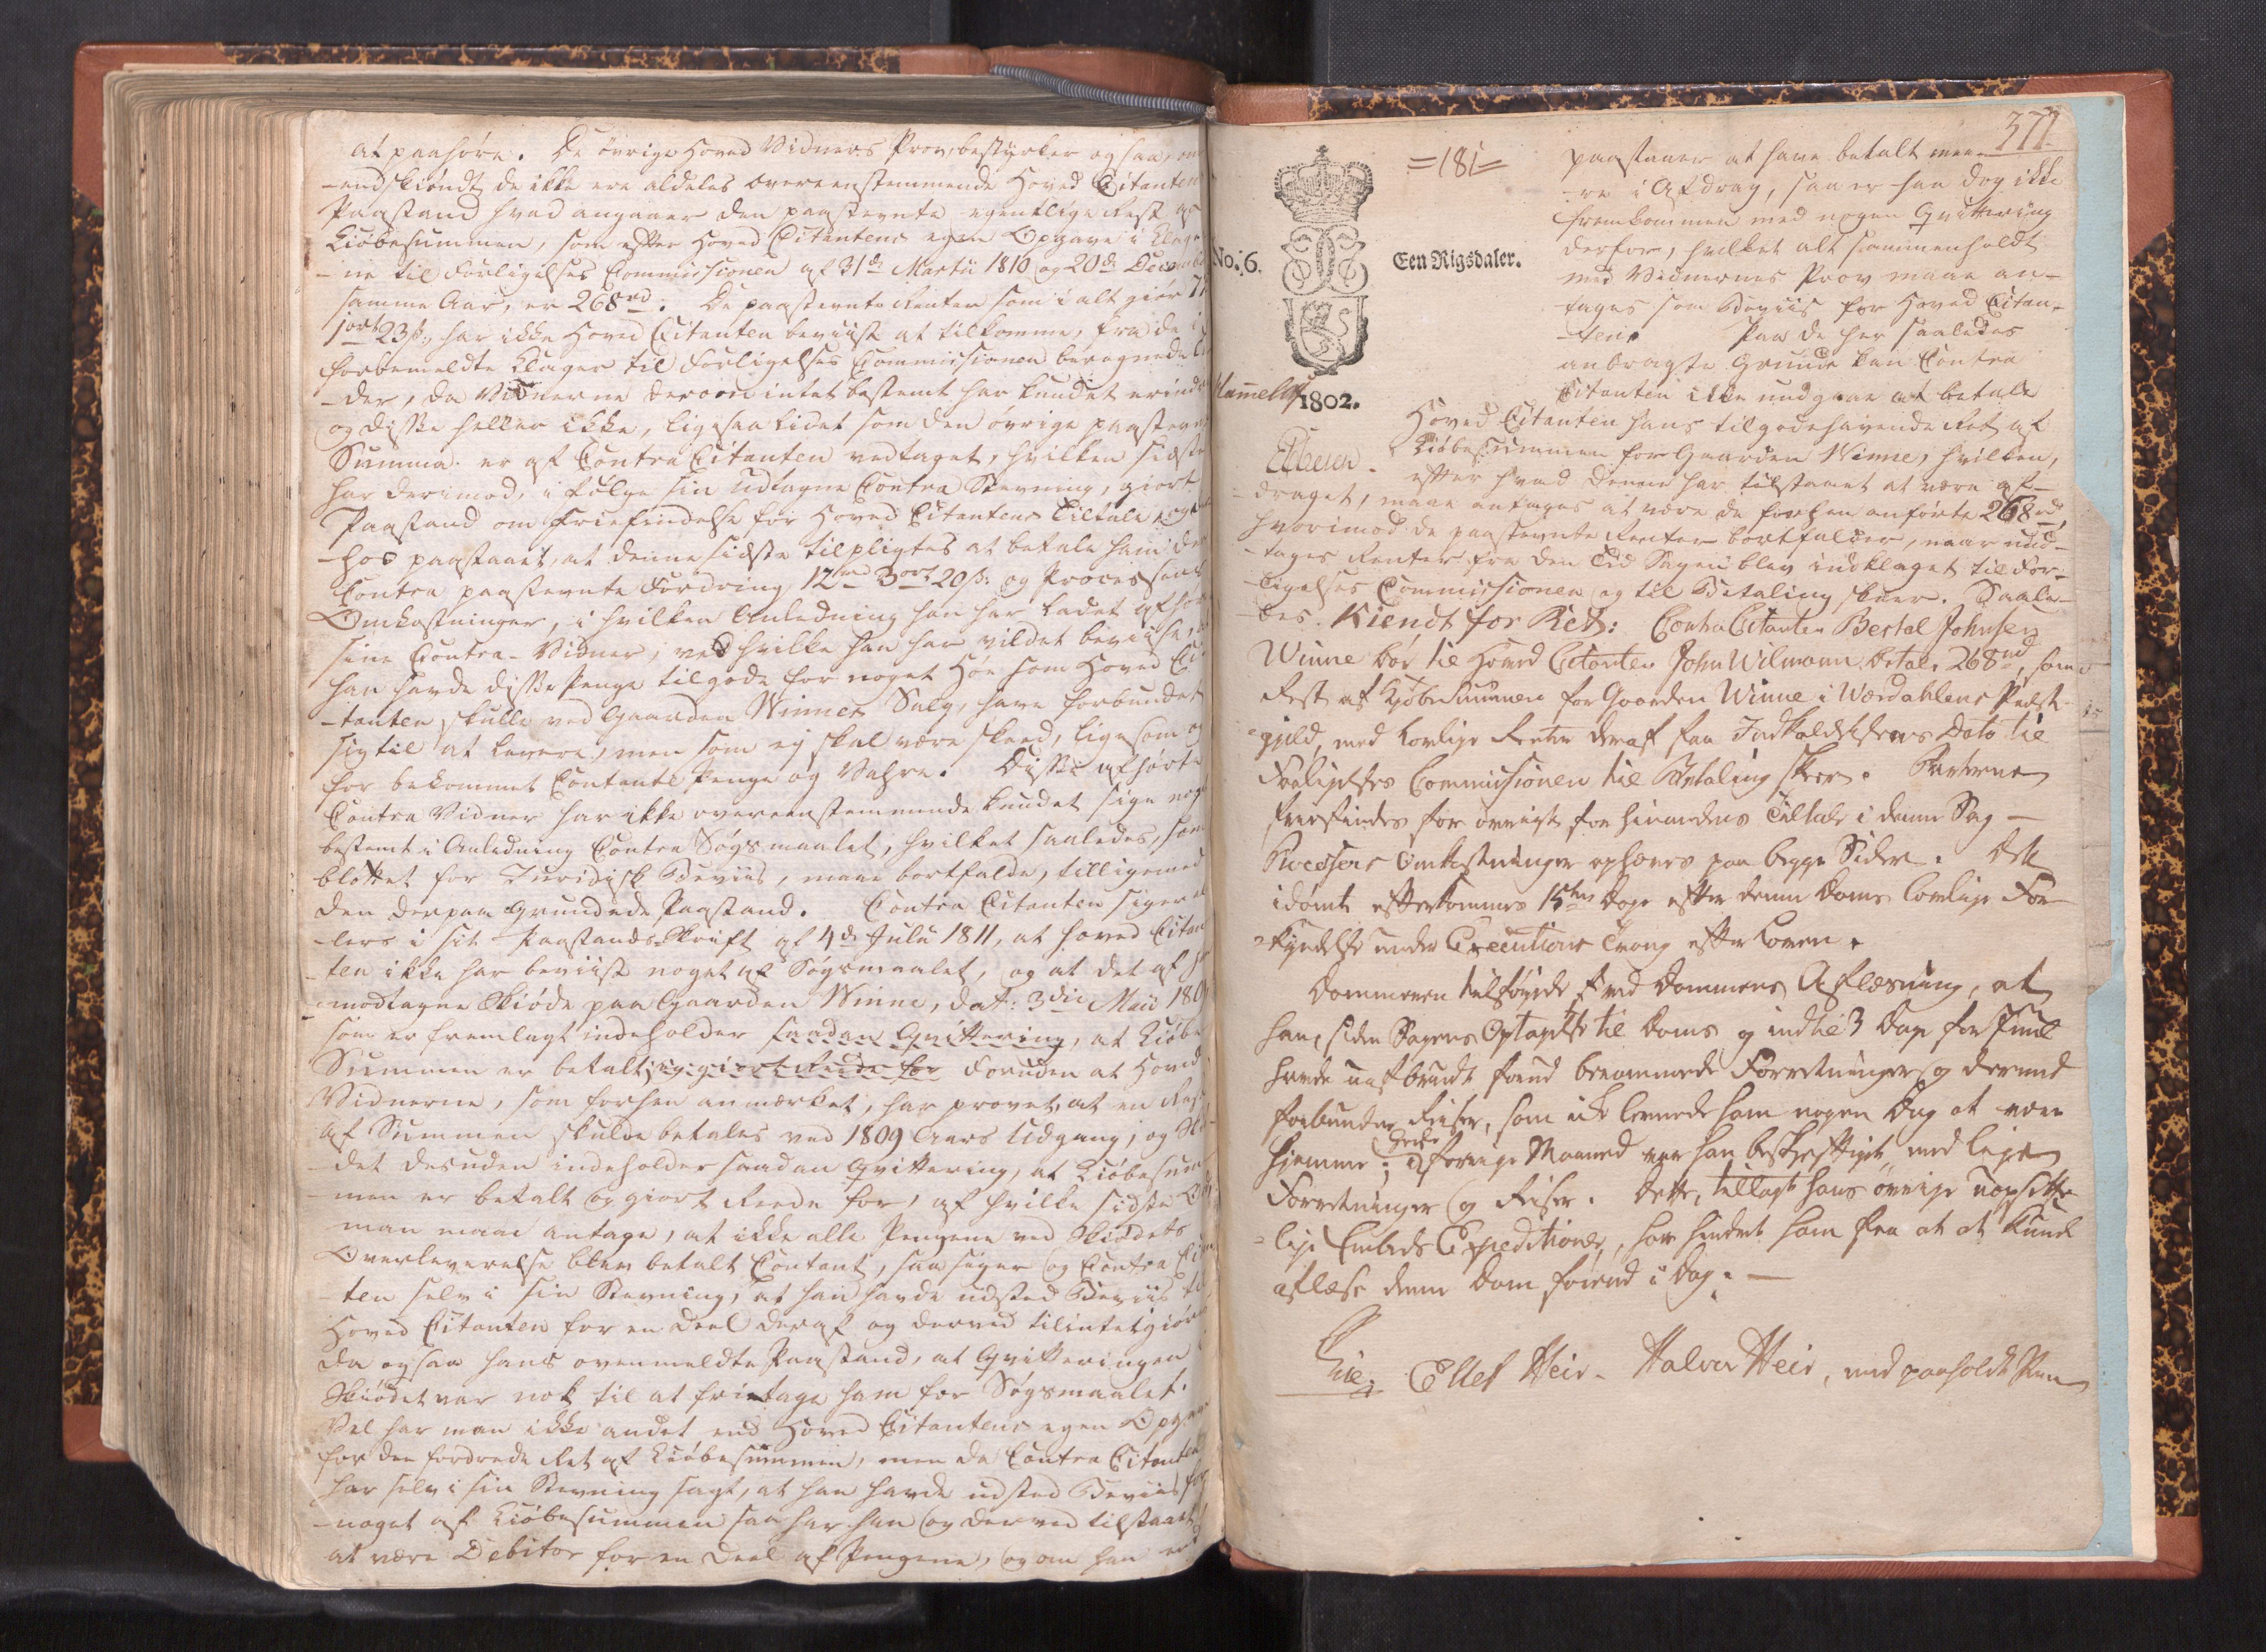 at paahöre. De övrige Hoved Vidners Prov, bestyrker ogsaa, om
-endskiöndt de ikke ere aldeles overeenstemmende Hoved Citanten
Paastand hvad angaaer den paastevnte egentlige Rest af
Kiöbesummen, som efter Hoved Citantens egen Opgave i Klage
-ne til Forligelses Commissionen af 31de Martii 1810 og 20de December
samme Aar, er 268rd. De paastevnte Renter som i alt giör
1ort 23s, har ikke Hoved Citanten beviist at tilkomme, fra de i
forbemeldte Klager til Forligelses Commissionen beregnede
-der, da Vidnerne derom intet bestemt har kundet erindre
og disse heller ikke, ligesaa lidet som den övrige paastevnte
Summa er af Contra Citanten vedtaget, hvilken sidste
har derimod, i fölge sin udtagne Contra Stevning, giort
Paastand om Friefindelse for Hoved Citantens Tiltale, og
-hos paastaaet, at denne sidste tilpligtes at betale ham den
Contra paastevnte Fordring 12rd 3ort 20s: og Processens
Omkostninger, i hvilken Anledning han har ladet afhöre
sine Contra-Vidner, ved hvilke han har vildet beviise, at
han havde disse Penge tilgode for noget Höe som Hoved Ci
-tanten skulle ved Gaarden Winnes Salg, have forbundet
sig til at levere, men som ej skal være skeed, ligesom og
for bekommet Contante Penge og Vahre. Disse afhörte
Contra Vidner har ikke overeenstemmende kundet sige noget
bestemt i Anledning Contra Sögsmaalet, hvilket saaledes, som
blottet for Juridisk Beviis, maae bortfalde, tilligemed
den derpaa grundede Paastand. Contra Citanten siger el
-lers i sit Paastands Skrift af 4de Julii 1811, at Hoved Citan
-ten ikke har beviist noget af Sögsmaalet, og at det af ham
-modtagne Skiöde paa Gaarden Winne, dat: 3die Maii 180
som er fremlagt indeholder saadan Qvittering, at Kiöbe
Summen er betalt; og giort Rede for Foruden at Hoved
Vidnerne, som forhen anmærket, har provet, at en Rest
af Summen skulde betales ved 1809 Aars Udgang, og Skiö
-det desuden indeholder saadan Qvittering, at Kiöbesum
-men er betalt og giort Reede for, af hvilke sidste Ord
man maae antage, at ikke alle Pengene ved Skiödets
Overleverelse blev betalt Contant, saa siger og Contra Citan
-ten selv i sin Stevning, at han havde udsted Beviis til
Hoved Citanten for en Deel deraf og derved tilintetgiör
da ogsaa hans ovenmeldte Paastand, at Qvitteringen i
Skiödet var nok til at fritage ham for Sögsmaalet.
Vel har man ikke andet end Hoved Citantens egen Opgave
for den fordrede Rest af Kiöbesummen, men da Contra Citanten
har selv i sin Stevning sagt, at han havde udsted Beviis for
-noget af Kiöbesummen saa har han og derved tilstaaet
at være Debitor for en Deel af Pengene, og om han end
377
=181=
No. 6.
Een Rigsdaler.
1802.
paastaaer at have betalt mee-
-re i Afdrag, saa er han dog ikke
fremkommen med nogen Qvittering
derfor, hvilket alt sammenholdt
med Vidnernes Prov maae an-
tages som Beviis for Hoved Citan-
-ten. Paa de her saaledes
anbragte Grunde kan Contra
Citanten ikke undgaae at betale
Hoved Citanten hans tilgodehavende Rest af
Kiöbesummen for Gaarden Winne, hvilken,
efter hvad denne har tilstaaet at være af-
draget, maae antages at være de forhen anförte 268rd,
hvorimod de paastevnte Renter bortfalder, naar und-
-tages Renter fra den Tid Sagen blev indklaget til For-
-ligelses Commissionen og til Betaling skeer. Saale-
-des. Kiendt for Ret: Contra Citanten Bertel Johnsen
Winne bör til Hoved Citanten John Wilmann betale 268rd, som
Rest af Kjöbesummen for Gaarden Winne i Wærdahlens Præste
-gjeld, med lovlige Renter deraf fra Indkaldelsens Dato til
Forligelses Commissionen til Betaling skeer. Parterne
friefindes for övrigt for hinandens Tiltale i denne Sag —
Processens Omkostninger ophæves paa begge Sider. Dette
idömte efterkommes 15ten Dage efter denne Doms lovlige For
-kyndelse under Executions Tvang efter Loven.
Dommeren tilföyede ved Dommens Aflæsning, at
han, siden Sagens Optagelse til Doms og indtil 3 Dage for Juul
havde uafbrudt havt berammede Forretninger og dermed
forbundne Reiser, som ikke levnede ham nogen Dag at være
hjemme; i forrige Maaned var han beskjeftiget med lige
Forretninger og Reiser. Dette, tillagt hans övrige uopsette
-lige Embeds Expeditioner, har hindret ham fra at at kunde
aflæse denne Dom forend i Dag. —
Lie. Ellef Heir. Halvor Heir, med paaholdt Pen